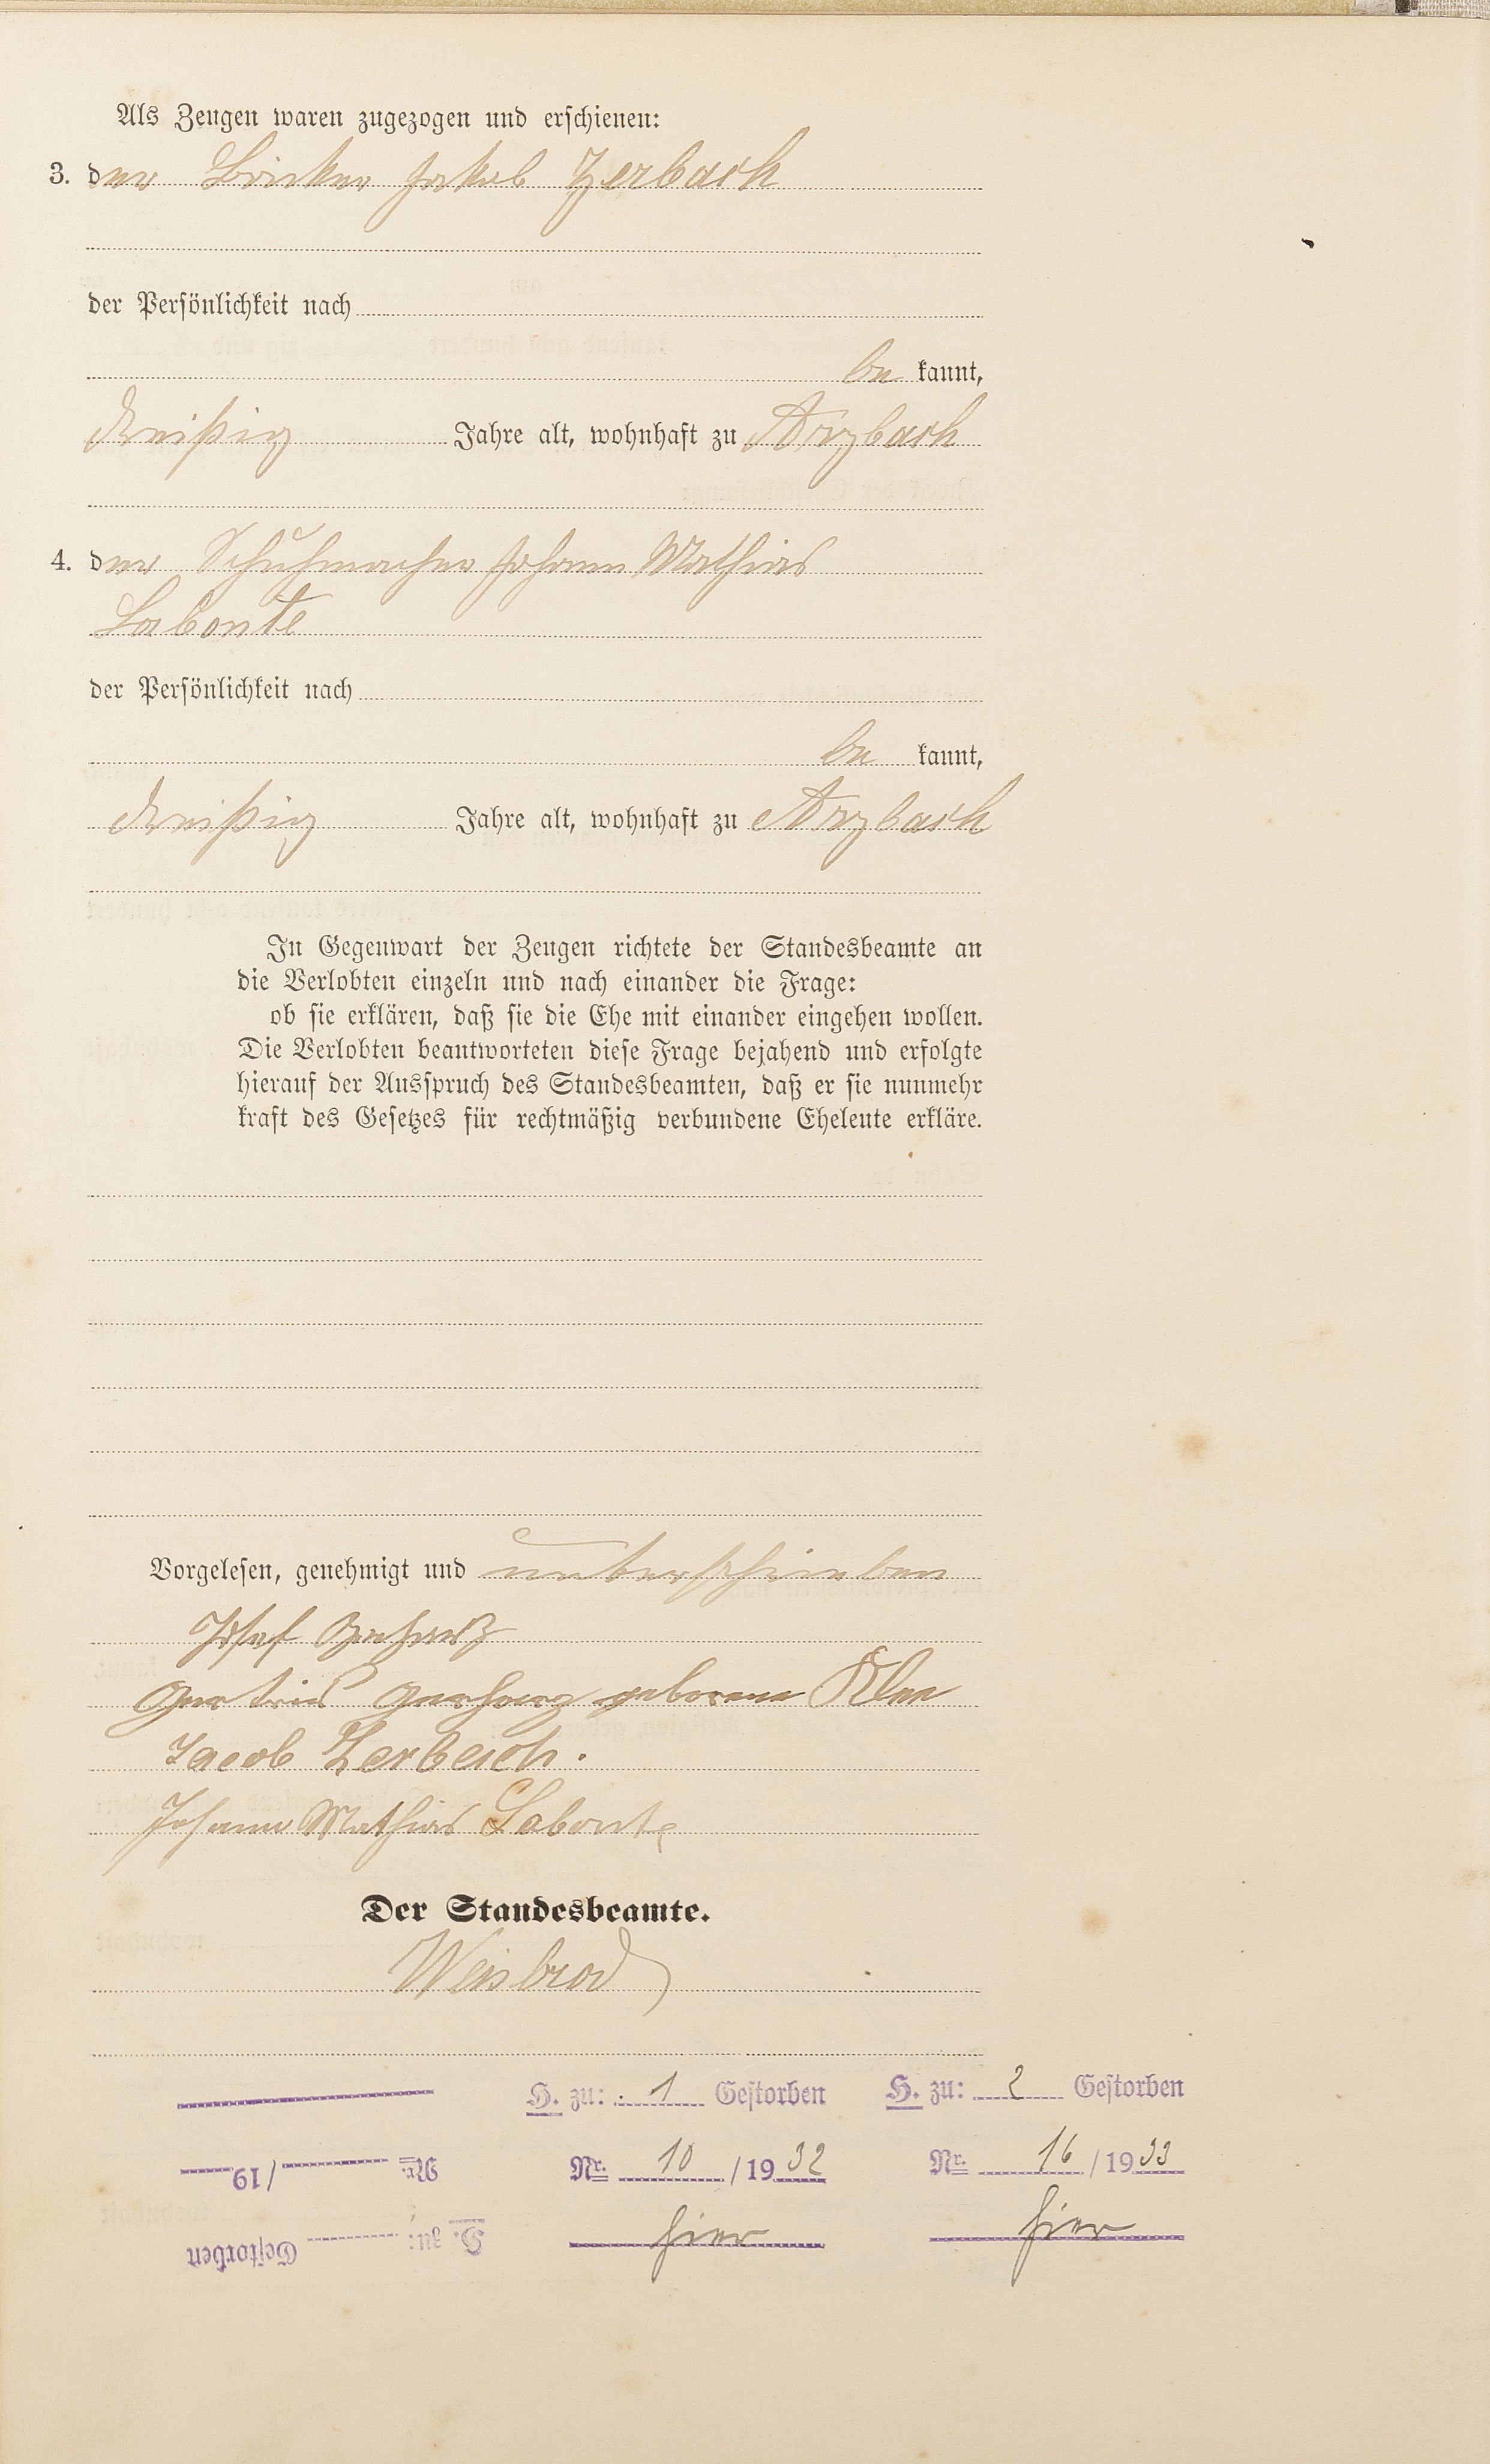 Als Zeugen waren zugezogen und erschienen:
3. der Bäcker Jakob Zerbach
der Persönlichkeit nach
be kannt,
dreißig Jahre alt, wohnhaft zu Arzbach
4. der Schuhmacher Johann Mathias
Labonte
der Persönlichkeit nach
be kannt,
dreißig Jahre alt, wohnhaft zu Arzbach
In Gegenwart der Zeugen richtete der Standesbeamte an
die Verlobten einzeln und nach einander die Frage:
ob sie erklären, daß sie die Ehe mit einander eingehen wollen.
Die Verlobten beantworteten diese Frage bejahend und erfolgte
hierauf der Ausspruch des Standesbeamten, daß er sie nunmehr
kraft des Gesetzes für rechtmäßig verbundene Eheleute erkläre.
Vorgelesen, genehmigt und unterschrieben
Josef Gerharz
Gertrud Gerharz geborene Klee
Jacob Zerbach.
Johann Mathias Labonte
Der Standesbeamte.
Weisbrod
H. zu: 1 Gestorben H. zu: 2 Gestorben
Nr. /19 Nr. 10 /1932 Nr. 16 /1933
H. zu: Gestorben hier hier